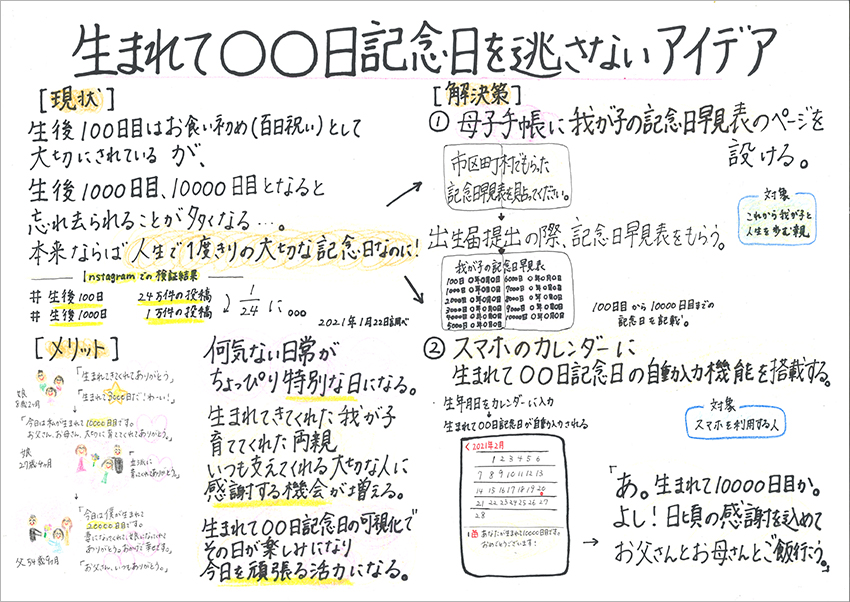 生まれて〇〇日記念日を逃さないアイデア
[現状]
生後100日目はお食い初め(百日祝い)として
大切にされているが、
生後1000日目、10000日目となると
忘れ去られることが多くなる…。
本来ならば人生で1度きりの大切な記念日なのに!
Instagramでの検証結果
#生後100日 24万件の投稿
#生後1000日 1万件の投稿
1/24に。。。
2021年1月22日調べ
[メリット]
娘
8歳2ヶ月
「生まれてきてくれてありがとう」
「生まれて3000日だ!わーい!」
「今日は私が生まれて10000日目です。
お父さん、お母さん、大切に育ててくれてありがとう。」
娘
27歳4ヶ月
「立派に
育ってくれてありがとう」
「今日は僕が生まれて
20000日目です。
ありがとう。おかげで幸せです。」
「お父さん、いつもありがとう。」
父54歳9ヶ月
何気ない日常が
ちょっぴり特別な日になる。
生まれてきてくれた我が子
育ててくれた両親
いつも支えてくれる大切な人に
感謝する機会が増える。
生まれて〇〇日記念日の可視化で
その日が楽しみになり
今日を頑張る活力になる。
[解決策]
① 母子手帳に我が子の記念日早見表のページを
設ける。
市区町村でもらった
記念日早見表を貼ってください。
対象
これから我が子と
人生を歩む親
出生届提出の際、記念日早見表をもらう。
我が子の記念日早見表
100日 0年0月0日 6000日 0年0月0日
1000日 0年0月0日 7000日 0年0月0日
2000日 0年0月0日 8000日 0年0月0日
3000日 0年0月0日 9000日 0年0月0日
4000日 0年0月0日 10000日 0年0月0日
5000日 0年0月0日
100日目から10000日目までの
記念日を記載。
② スマホのカレンダーに
生まれて〇〇日記念日の自動入力機能を搭載する。
・生年月日をカレンダーに入力
生まれて〇〇日記念日が自動入力される
対象
スマホを利用する人
< 2021年2月
1 2 3 4 5 6
7 8 9 10 11 12 13
14 15 16 17 18 19 20
21 22 23 24 25 26 27
28
あなたが生まれて10000日目です。
おめでとうございます!
「あ。生まれて10000日目か。
よし!日頃の感謝を込めて
お父さんとお母さんとご飯行こう。」